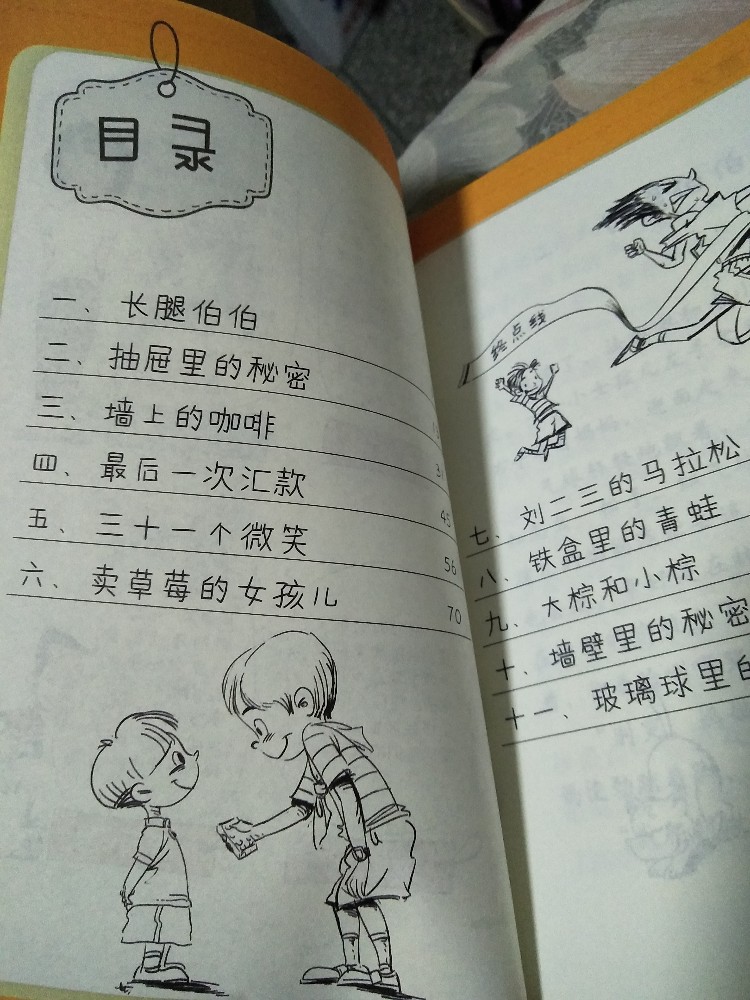 目录
一、长腿伯伯
二、抽屉里的秘密
三、墙上的咖啡
四、最后一次汇款 45
五、三十一个微笑 56
六、卖草莓的女孩儿 70
终点线
七、刘二三的马拉松
八、铁盒里的青蛙
九、大棕和小棕
十、墙壁里的秘密
十一、玻璃球里的